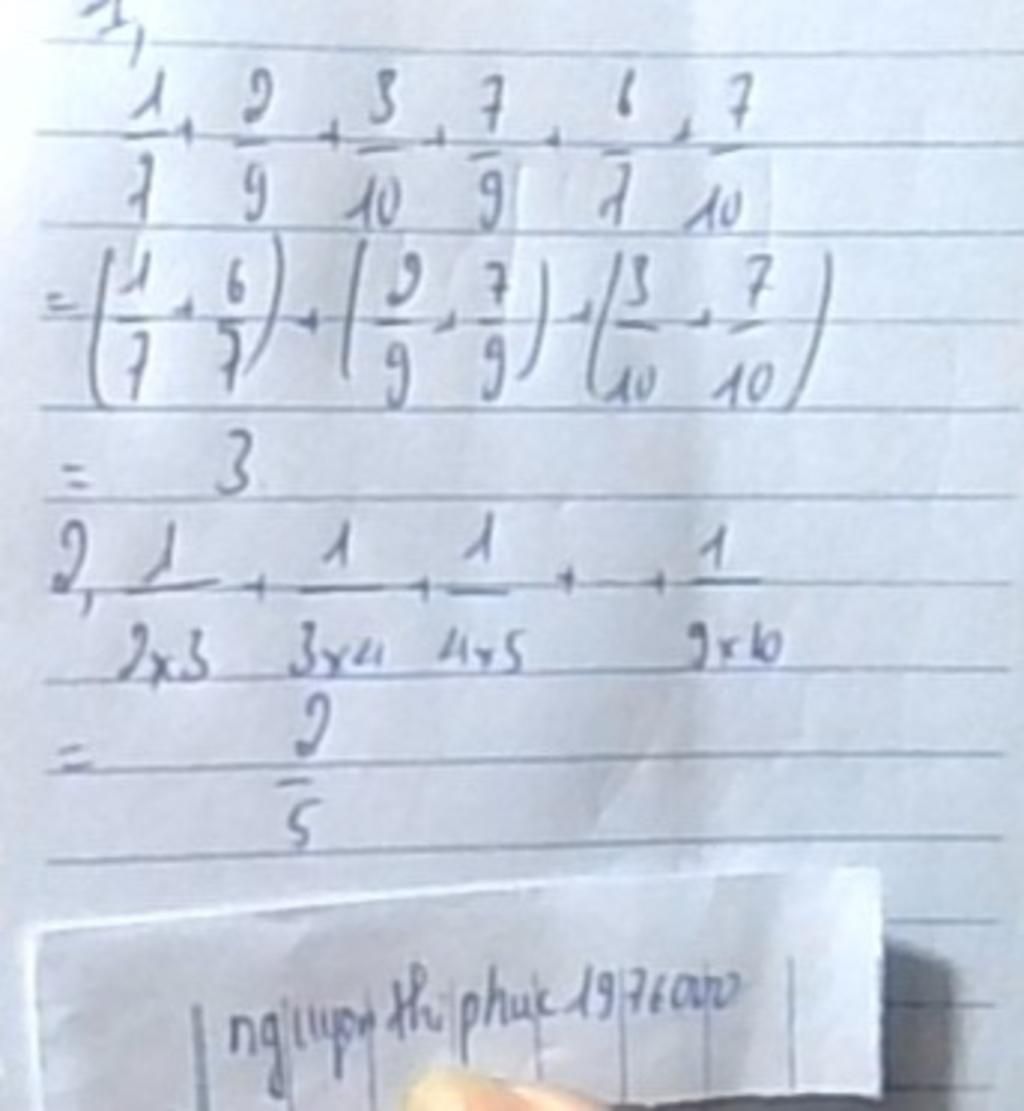 1,
1/7 + 2/9 + 3/10 + 7/9 + 6/7 + 7/10
= (1/7 + 6/7) + (2/9 + 7/9) + (3/10 + 7/10)
= 3
2, 1/2x3 + 1/3x4 + 1/4x5 + ... + 1/9x10
= 2/5
nguyen thi phuc 1976000